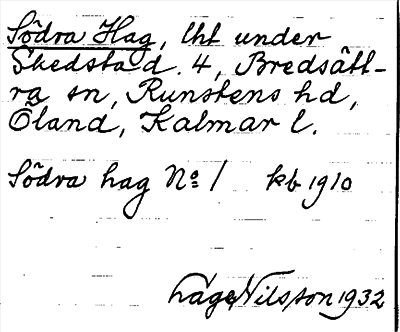 Södra Hag, lht under
Skedstad. 4, Bredsätt-
ra sn, Runstens hd,
Öland, Kalmar l.
Södra hag No 1 kb 1910
Lage Nilsson 1932